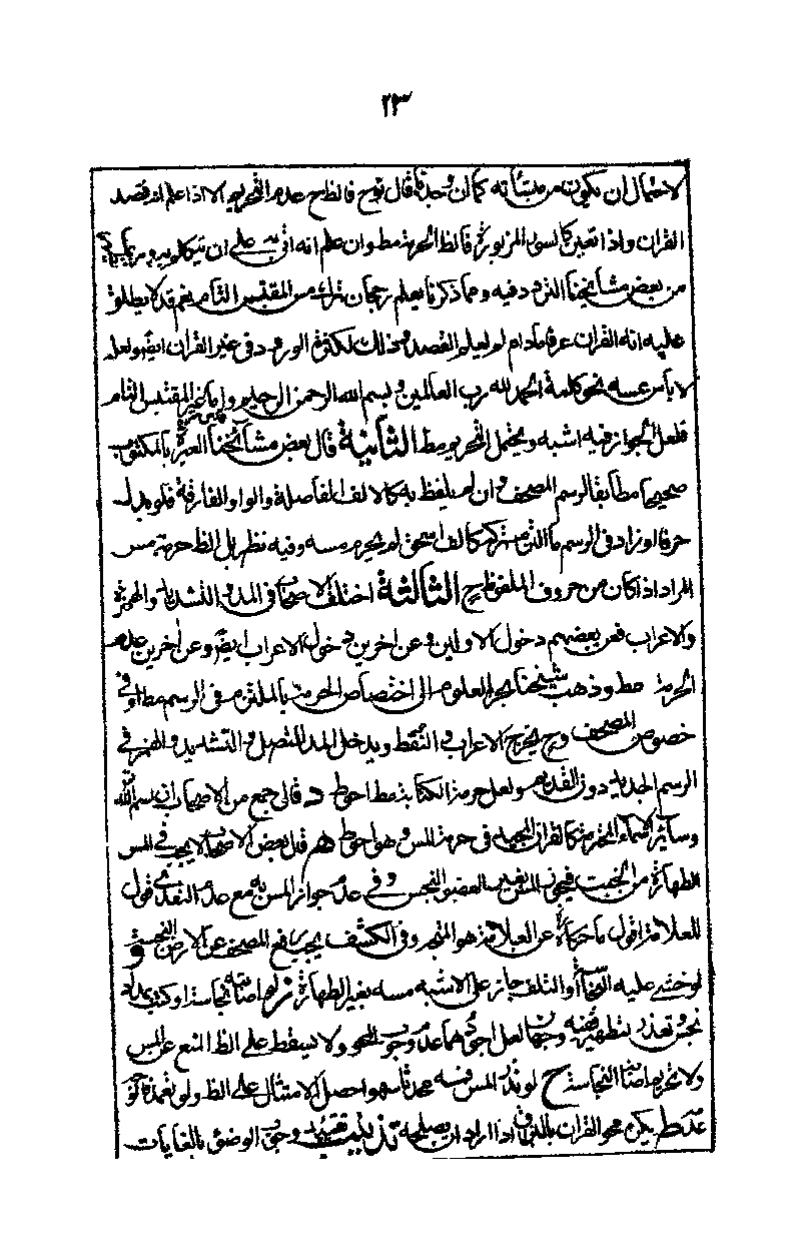 ٢٣
لاحتمال ان يكون من منشأته كما ان وجد قال نوح فالظ ح عدم التحريم الا اذا علم انه قصد
القران واذا تعين كالسور المزبورة فالظ الحرمة مط وان علم انه اتى به على ان يتكلم به
من بعض مشايخنا التردد فيه ومما ذكرنا يعلم رجحان ترك مس المقتبس التام نعم قد لا يطلق
عليه انه القران عرفا مادام لم يعلم القصد وذلك لكثرة الورود في غير القران ايض ولعله
لا بأس بمسه نحو كلمة الحمد لله رب العالمين وبسم الله الرحمن الرحيم واما غير المقتبس التام
فلعل الجواز فيه اشبه ويحتمل التحريم مط الثانية قال بعض مشايخنا العبرة بالمكتوب
صحيحا مطابقا لرسم المصحف وان لم يلفظ به كالالف الفاصلة والواو الفارقة فلو بدل
حرفا او زاد في الرسم ما التزم تركه كالف اسحق لم يحرم مسه وفيه نظر بل الظ حرمة مس
المراد اذا كان من حروف الملفوظ ح الثالثة اختلف الاصحاب في المد والتشديد والهمزة
والاعراب فعن بعضهم دخول الاولين وعن اخرين دخول الاعراب ايض وعن اخرين عدم
الحرمة مط وذهب شيخنا بحر العلوم الى اختصاص الحرمة بالملتزم في الرسم مط او في
خصوص المصحف وح يخرج الاعراب والنقط ويدخل المد المتصل والتشديد والهمز في
الرسم الجديد دون القديم ولعل حرمة الكتابة مط احوط د قال جمع من الاصحاب ان اسم الله
وسائر الاسماء المحترمة كالقران المجيد في حرمة المس وهو احوط هـ قال بعض الاصحاب لا يجب في المس
الطهارة من الخبث فيجوز المس بغير العضو النجس وفي عدم جواز المس به مع عدم التعدي قول
للعلامة اقول ما حكاه عن العلامة هو المتجه وفي الكشف يجب رفع المصحف عن الارض النجسة و
لو خشي عليه النجاسة او التلف جاز على الاشبه مسه بغير الطهارة ز لو اصابته نجاسة او كتب بمداد
نجس وتعذر تطهيره ففيه وجهان لعل اجودهما عدم وجوب المحو ولا يسقط على الظ المنع عن المس
ولا تحريم اصابة النجاسة ح لو نذر المس فمسه محدثا سهوا حصل الامتثال على الظ ولو تعمد فالاقوى
عدمه ط يكره محو القران بالبزاق اذا اراد ان يصلحه تذنيب وجوب الوضوء بالغايات